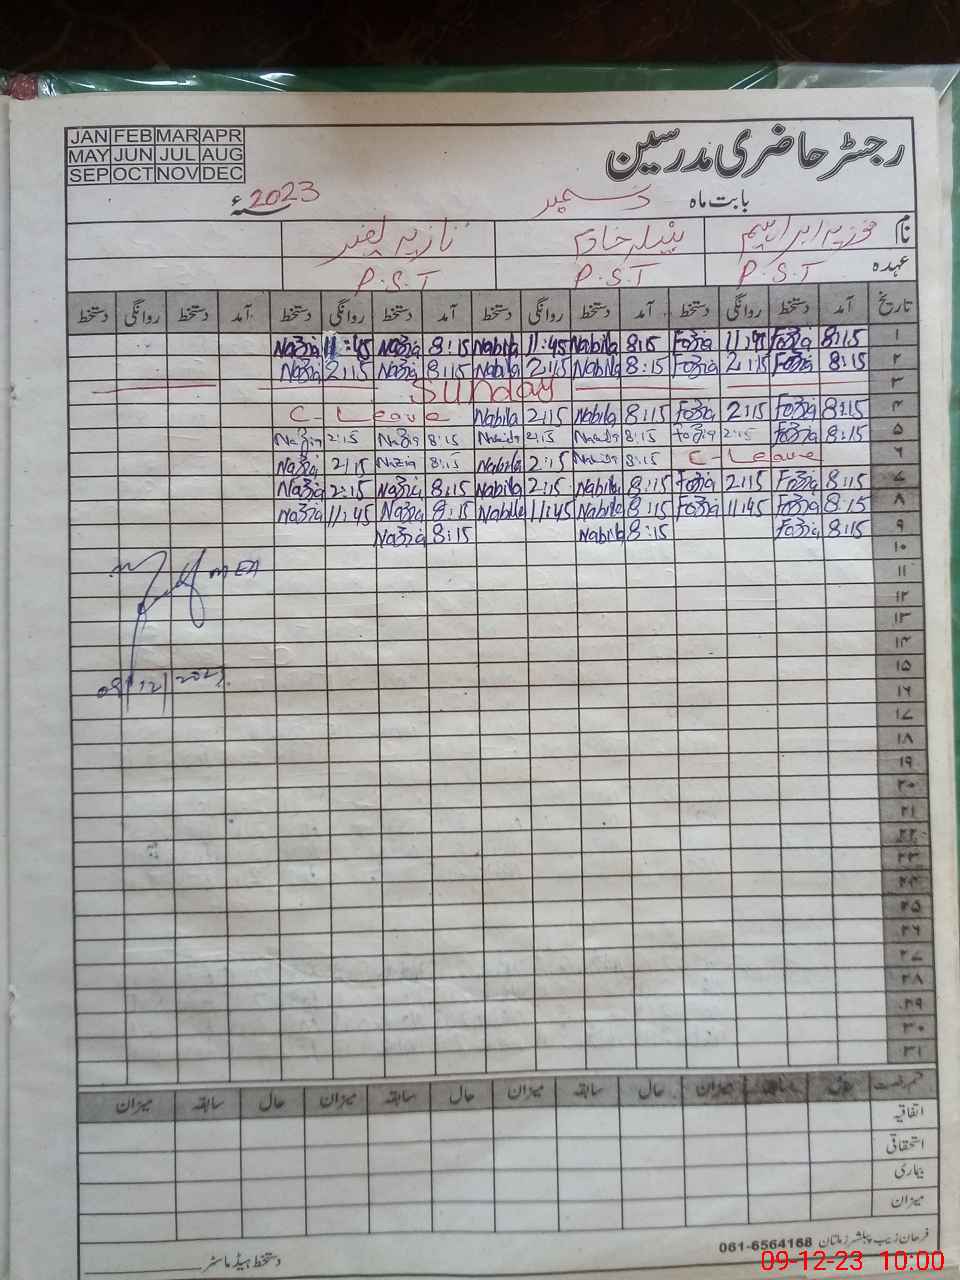 JAN FEB MAR APR
MAY JUN JUL AUG
SEP OCT NOV DEC
رجسٹر حاضری مدرسین
بابت ماہ دسمبر 2023ء
نام فوزیہ ابراہیم نبیلہ خادم نازیہ
عہدہ P.S.T P.S.T P.S.T
تاریخ آمد دستخط روانگی دستخط آمد دستخط روانگی دستخط آمد دستخط روانگی دستخط آمد دستخط روانگی دستخط
۱ 8:15 Fozia 11:45 Fozia 8:15 Nabila 11:45 Nabila 8:15 Nazia 11:45 Nazia
۲ 8:15 Fozia 2:15 Fozia 8:15 Nabila 2:15 Nabila 8:15 Nazia 2:15 Nazia
۳ Sunday
۴ 8:15 Fozia 2:15 Fozia 8:15 Nabila 2:15 Nabila C-Leave
۵ 8:15 Fozia 2:15 Fozia 8:15 Nabila 2:15 Nabila 8:15 Nazia 2:15 Nazia
۶ C-Leave 8:15 Nabila 2:15 Nabila 8:15 Nazia 2:15 Nazia
۷ 8:15 Fozia 2:15 Fozia 8:15 Nabila 2:15 Nabila 8:15 Nazia 2:15 Nazia
۸ 8:15 Fozia 11:45 Fozia 8:15 Nabila 11:45 Nabila 8:15 Nazia 11:45 Nazia
۹ 8:15 Fozia 8:15 Nabila 8:15 Nazia
۱۰
۱۱ MEA
۱۲
۱۳
۱۴
۱۵
۱۶ 09/12/2023
۱۷
۱۸
۱۹
۲۰
۲۱
۲۲
۲۳
۲۴
۲۵
۲۶
۲۷
۲۸
۲۹
۳۰
۳۱
قسم رخصت حال سابقہ میزان حال سابقہ میزان حال سابقہ میزان حال سابقہ میزان
اتفاقیہ
استحقاقی
بیماری
میزان
فرحان زیب پبلشرز ملتان 061-6564168
دستخط ہیڈ ماسٹر
09-12-23 10:00